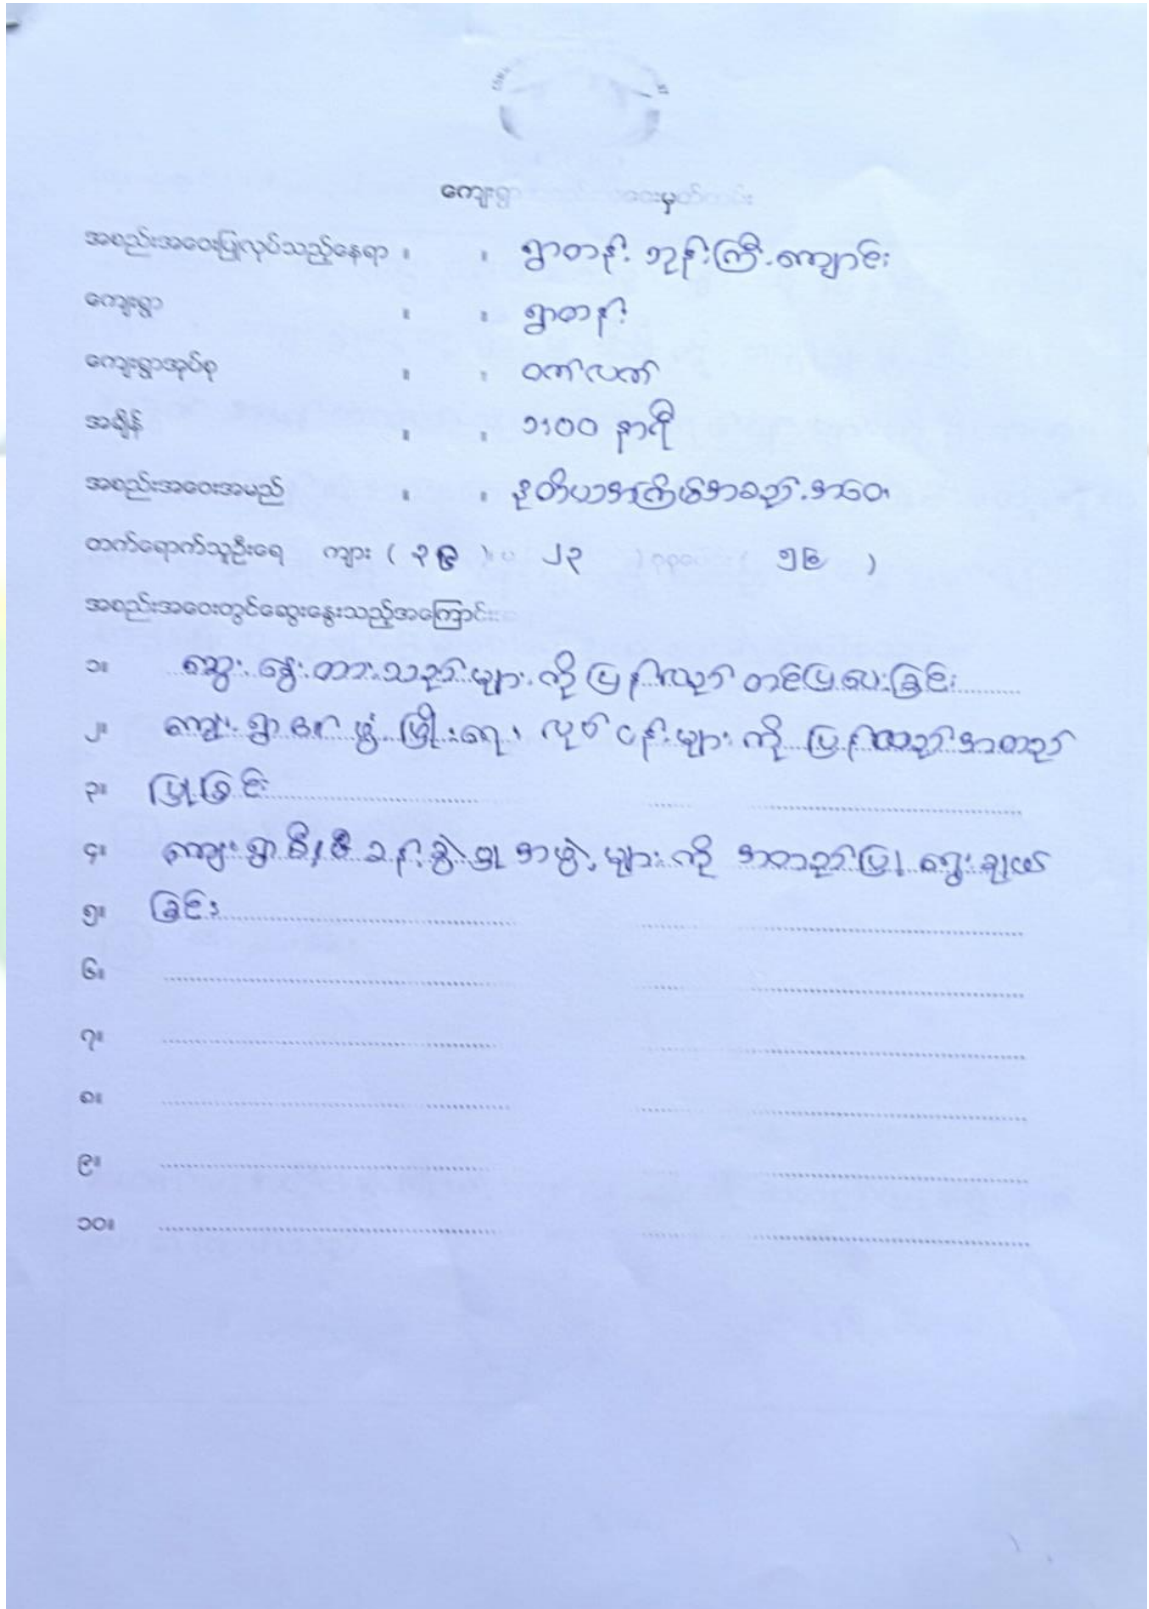 ကျေးရွာ အစည်းအဝေးမှတ်တမ်း
အစည်းအဝေးပြုလုပ်သည့်နေရာ ။ ။ ရွာတန်း ဘုန်းကြီးကျောင်း
ကျေးရွာ ။ ။ ရွာတန်း
ကျေးရွာအုပ်စု ။ ။ ဝက်လက်
အချိန် ။ ။ ၁း၀၀ နာရီ
အစည်းအဝေးအမည် ။ ။ ဒုတိယအကြိမ်အစည်းအဝေး
တက်ရောက်သူဦးရေ ကျား ( ၃၉ ) ၂၃ ( ၅၆ )
အစည်းအဝေးတွင်ဆွေးနွေးသည့်အကြောင်း
၁။ ဆွေးနွေးထားသည်များကို ပြန်လည် တင်ပြပေးခြင်း
၂။ ကျေးရွာ ဖွံ့ဖြိုးရေး လုပ်ငန်းများ ကို ပြန်လည်အတည်
၃။ ပြုခြင်း
၄။ ကျေးရွာစီမံခန့်ခွဲမှု အဖွဲ့များကို အတည်ပြု ရွေးချယ်
၅။ ခြင်း
၆။
၇။
၈။
၉။
၁၀။